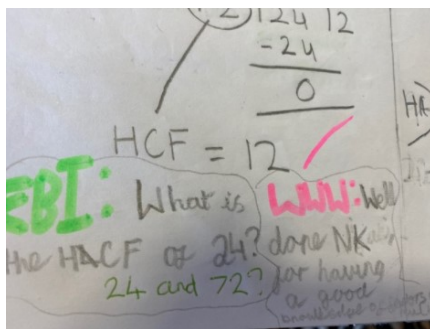 12 124 12
-24
0
HCF = 12
EBI: What is
the HACF of 24?
24 and 72?
WWW: Well
done NK
for having
a good
knowledge of